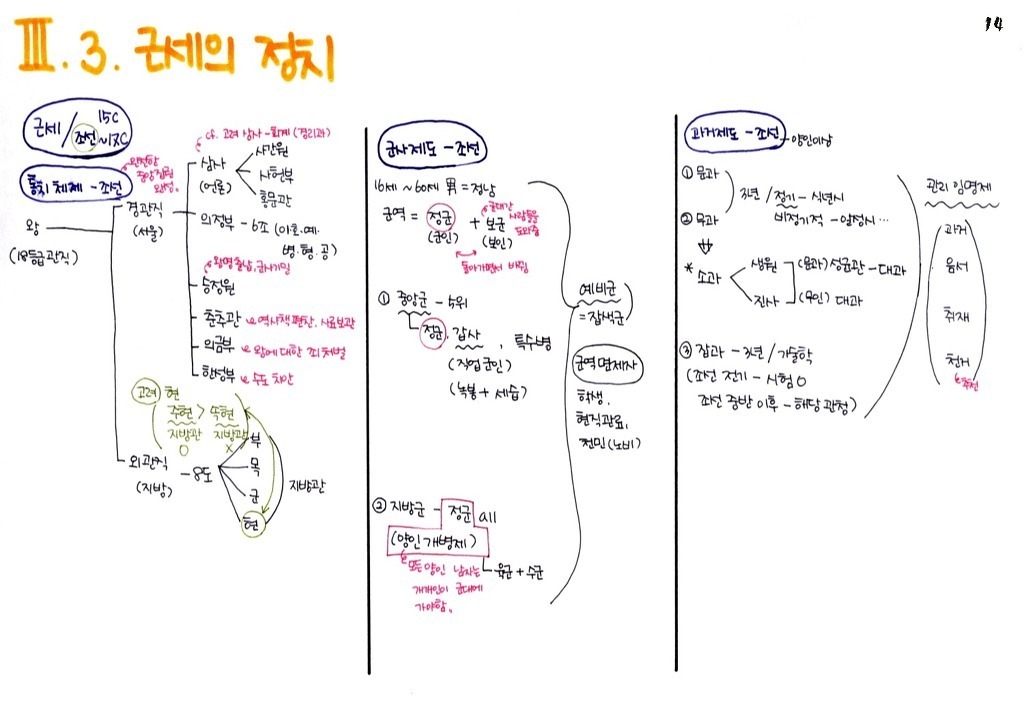 14
Ⅲ.3. 근세의 정치
근세/조선 15C
~17C
통치 체제 - 조선
완전한
중앙집권
완성.
왕
(18등급 관직)
경관직
(서울)
cf. 고려 삼사 - 회계 (경리과)
삼사
(언론)
사간원
사헌부
홍문관
의정부 - 6조 (이·호·예·
병·형·공)
왕명출납, 군사기밀
승정원
춘추관 역사책 편찬, 사료보관
의금부 왕에 대한 죄 처벌
한성부 수도 치안
고려 현
주현 > 속현
지방관 지방관
O X
외관직
(지방)
- 8도
부
목
군
현
지방관
군사제도 - 조선
16세 ~ 60세 男 = 정남
군역 = 정군 + 보군
(군인) (보인)
군대간
사람들을
도와줌
돌아가면서 바뀜
① 중앙군 - 5위
정군, 갑사, 특수병
(직업군인)
(녹봉 + 세습)
② 지방군 - 정군 all
(양인개병제)
모든 양인 남자는
개개인이 군대에
가야함.
육군 + 수군
예비군
= 잡색군
군역면제자
학생,
현직관료,
천민(노비)
과거제도 - 조선 - 양인이상
① 문과
② 무과
3년 / 정기 - 식년시
비정기적 - 알성시…
* 소과
생원
진사
(문과) 성균관 - 대과
(무인) 대과
③ 잡과 - 3년 / 기술학
(조선 전기 - 시험 O
조선 중반 이후 - 해당 관청)
관리 임명제
과거
음서
취재
천거
추천